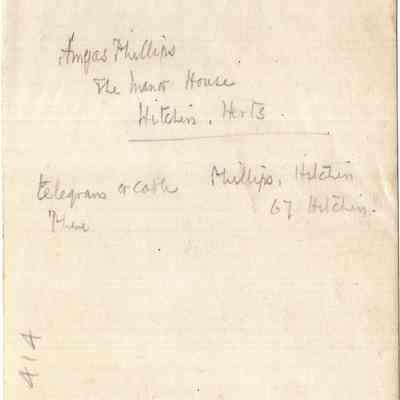 Angas Phillips
The Manor House
Hitchin, Herts.
telegrams or cable Phillips, Hitchin
Phone 67 Hitchin.
414